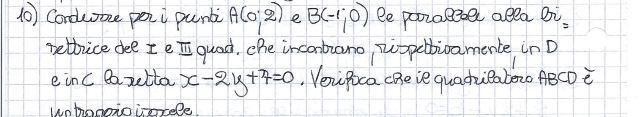 10) Condurre per i punti A(0;2) e B(-1;0) le parallele alla bi=
settrice del I e III quad, che incontrano, rispettivamente, in D
e in C la retta x-2y+7=0. Verifica che il quadrilatero ABCD è
un trapezio isoscele.